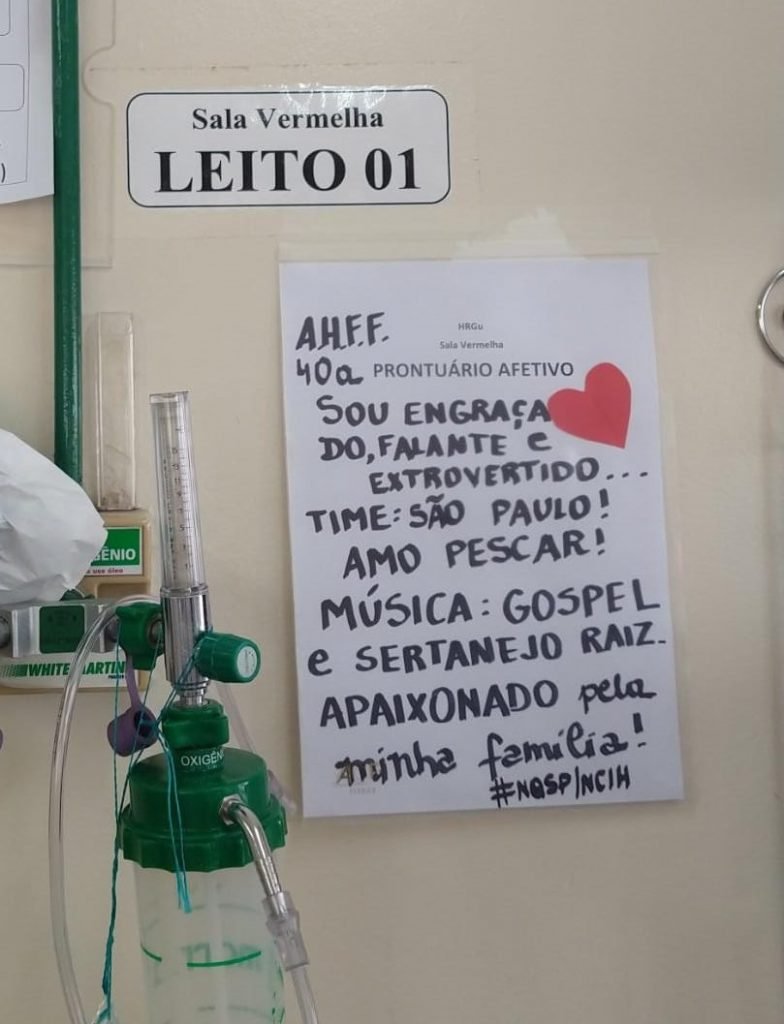 Sala Vermelha
LEITO 01
A.H.F.F.
HRGu
Sala Vermelha
40a PRONTUÁRIO AFETIVO
SOU ENGRAÇA
DO, FALANTE e
EXTROVERTIDO...
TIME: SÃO PAULO!
AMO PESCAR!
MÚSICA: GOSPEL
e SERTANEJO RAIZ.
APAIXONADO pela
minha família!
#NQSP/NCIH
WHITE MARTIN